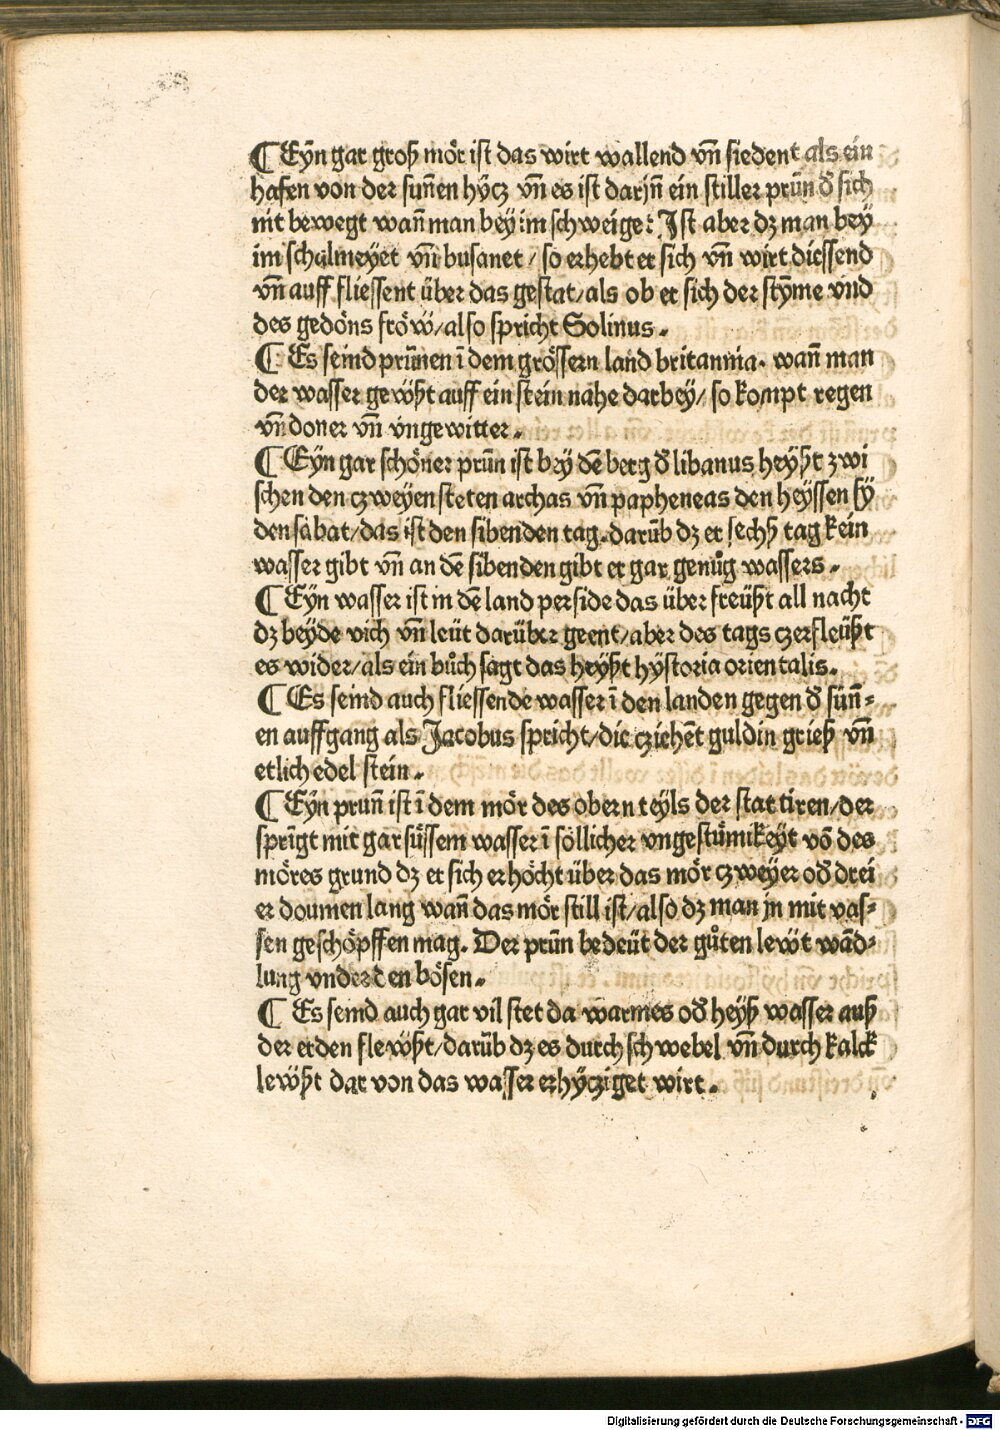 ¶ Eÿn gar groß mör ist das wirt wallend vn̄ siedent als ein
hafen von der sun̄en hÿcz vn̄ es ist darjn̄ ein stiller prūn d̄ sich
nit bewegt wan̄ man beÿ im schweiget Ist aber dz man beÿ
im schalmeyet vn̄ busanet / so erhebt er sich vn̄ wirt diessend
vn̄ auff fliessent über das gestat/als ob er sich der stÿme vnd
des gedöns fröw̋/also spricht Solinus.
¶ Es seind prūnen ī dem grössern land britannia. wan̄ man
der wasser gewßt auff ein stein nahe darbeÿ/ so kompt regen
vn̄ doner vn̄ vngewitter.
¶ Eÿn gar schöner prūn ist beÿ dē berg d̄ libanus heÿßt zwi
schen den czweÿen steten archas vn̄ papheneas den heÿssen sÿ
den sabat/das ist den sibenden tag. darūb dz er sechß tag kein
wasser gibt vn̄ an dē sibenden gibt er gar genůg wassers.
¶ Eÿn wasser ist in dē land perside das über freüßt all nacht
dz beÿde vich vn̄ leüt darüber geent/aber des tags czerfleüßt
es wider/als ein bůch sagt das heÿßt hÿstoria orientalis.
¶ Es seind auch fliessende wasser ī den landen gegen d̄ sun̄-
en auffgang als Jacobus spricht/die cziehēt guldin grieß vn̄
etlich edel stein.
¶ Eÿn prun̄ ist ī dem mör des obern teÿls der stat tiren/der
sprīgt mit gar süssem wasser ī söllicher vngestümikeyt vō des
möres grund dz er sich erhöcht über das mör czweÿer od̄ drei
er doumen lang wan̄ das mör still ist/also dz man jn mit vas-
sen geschöpffen mag. Der prūn bedeüt der gůten lewt wād-
lung vnder den bösen.
¶ Es seind auch gar vil stet da warmes od̄ heÿß wasser auß
der erden flewßt/darūb dz es durch schwebel vn̄ durch kalck
lewßt dar von das wasser erhÿcziget wirt.
Digitalisierung gefördert durch die Deutsche Forschungsgemeinschaft - DFG